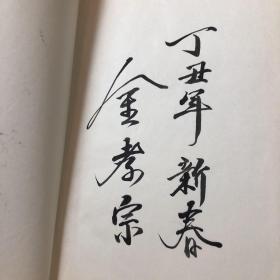 丁丑年 新春
金孝宗